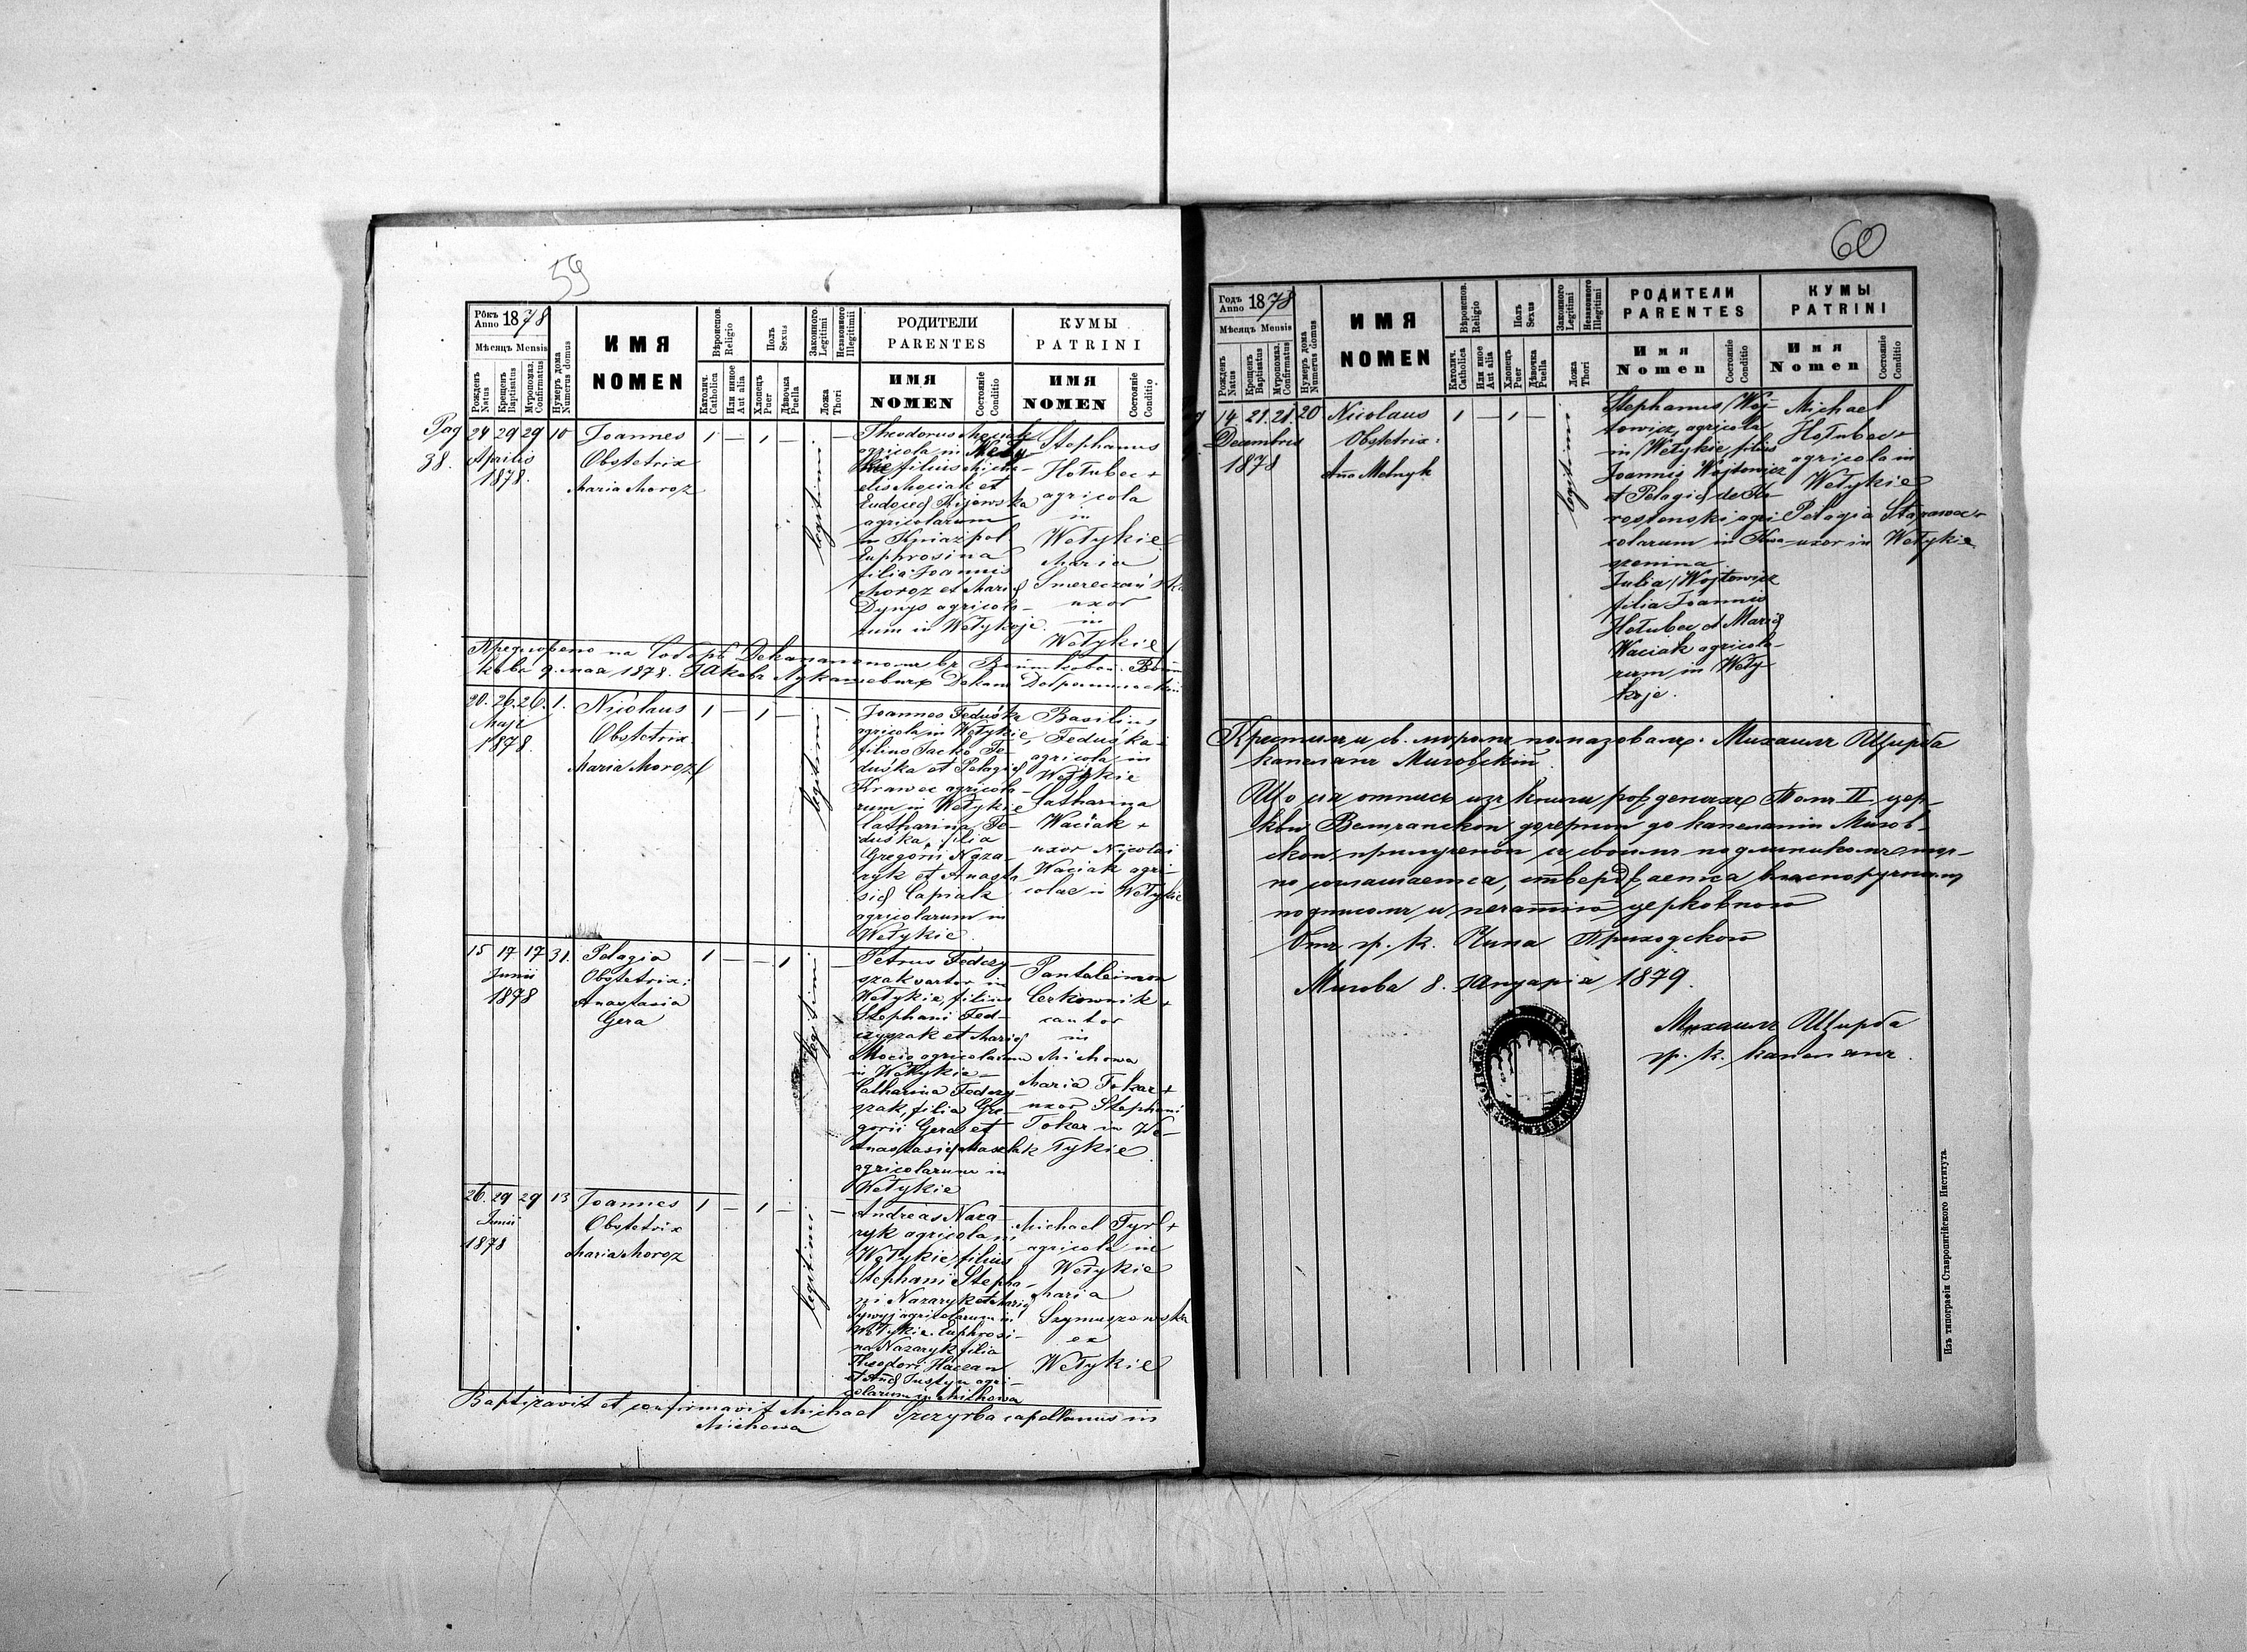 59
Рôкъ Anno 1878
Мѣсяцъ Mensis
Рожденъ Natus
Крещенъ Baptisatus
Муропомаз. Confirmatus
Нумеръ дома Numerus domus
ИМЯ
NOMEN
Вѣроиспов. Religio
Католич. Catholica
Или иное Aut alia
Полъ Sexus
Хлопець Puer
Дѣвочка Puella
Законного Legitimi
Незаконного Illegitimii
Ложа Thori
РОДИТЕЛИ
PARENTES
ИМЯ
NOMEN
Состояніе Conditio
КУМЫ
PATRINI
ИМЯ
NOMEN
Состояніе Conditio
Pag
38.
24 29 29 10
Aprilis
1878.
Joannes
Obstetrix
Maria Moroz
1 — 1 —
legitimi
Theodorus Mociak
agricola in Weły-
kie filius Micha-
elis Mociak et
Eudociæ Kijowska
agricolarum
in Kniazpol
Euphrosina
filia Joannis
Moroz et Mariæ
Dynys agricola-
rum in Wełykoje.
Stephanus
Hołubec +
agricola
in
Wełykie
Maria
Smereczańska
uxor
in
Wełykie
9. мая 1878. Яковъ Лукашевичъ Деканъ Добромильскій
20. 26. 26. 1.
Maji
1878.
Nicolaus
Obstetrix.
Maria Moroz
1 — 1 —
legitimi
Joannes Feduśka
agricola in Wełykie,
filius Jacko Fe-
duśka et Pelagiæ
Krawec agricola-
rum in Wełykie
Catharina Fe-
duśka, filia
Gregorii Naza-
ryk et Anasta-
siæ Capiak
agricolarum in
Wełykie.
Basilius
Feduśka
agricola in
Wełykie
Catharina
Waciak +
uxor Nicolai
Waciak agri-
colae in Wełykie
15 17 17 31.
Junii
1878
Pelagia
Obstetrix:
Anastasia
Gera
1 — — 1
legitimi
Petrus Fedczy-
szak vartor in
Wełykie, filius
Stephani Fed-
czyszak et Mariæ
Mocio agricolarum
in Wełykie —
Catharina Fedczy-
szak, filia Gre-
gorii Gera et
Anastasiæ
agricolarum in
Wełykie
Pantaleimon
Cerkownik +
cantor
in
Michowa
Maria Tokar +
uxor Stephani
Tokar in We-
łykie.
26. 29 29 13
Junii
1878
Joannes
Obstetrix
Maria Moroz
1 — 1 —
legitimi
Andreas Naza-
ryk agricola in
Wełykie, filius
Stephanii Stepha-
ni Nazaryk et Mariæ
agricolarum in
Wełykie. Euphrosi-
na Nazaryk filia
Theodori
et Annæ Justyn agri-
colarum in Michowa
Michael Tyrl +
agricola in
Wełykie
Maria
Szymuszowska
ex
Wełykie
Baptizavit et confirmavit Michael Szczyrba capellanus in
Michowa
60
Годъ Anno 1878
Мѣсяцъ Mensis
Рожденъ Natus
Крещенъ Baptisatus
Муропомаз. Confirmatus
Нумеръ дома Numerus domus
ИМЯ
NOMEN
Вѣроиспов. Religio
Католич. Catholica
Или иное Aut alia
Полъ Sexus
Хлопець Puer
Дѣвочка Puella
Законного Legitimi
Незаконного Illegitimi
Ложа Thori
РОДИТЕЛИ
PARENTES
Имя
Nomen
Состояніе Conditio
КУМЫ
PATRINI
Имя
Nomen
Состояніе Conditio
14. 21. 21. 20
Decembris
1878
Nicolaus
Obstetrix:
Anna Melnyk
1 — 1 —
legitimi
Stephanus Woj-
towicz, agricola
in Wełykie, filius
Joannis Wojtowicz
et Pelagiæ de Te-
restenski agri-
colarum in Kwa-
szenina
Julia Wojtowicz
filia Joannis
Hołubec et Mariæ
Waciak agricola-
rum in Wełyk-
koje.
Michael
Hołubec +
agricola in
Wełykie
Pelagia Starawec +
uxor in Wełykie
Крестилъ и св. муромъ помазовалъ. Михаилъ Щирба
капеланъ Миговскій.
Що ся отпись изъ книги рожденыхъ Томъ II. цер-
кви Велычанской дочерной до капеланіи Мигов-
ской прилученой
подписомъ и печатію церковною
Отъ гр. к. Чина Приходскою
Мигова 8. Януарія 1879.
Михаилъ Щирба
гр. к. капеланъ.
Изъ типографіи Ставропигійского Института